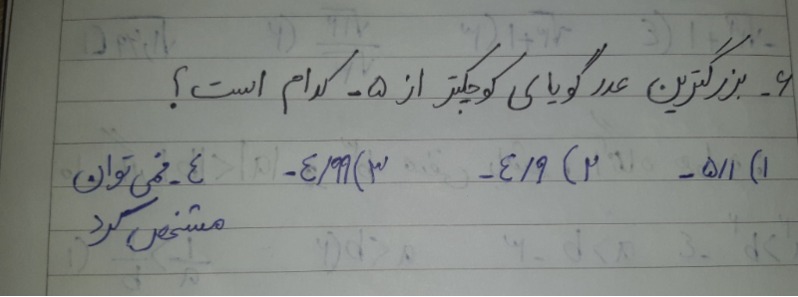 ۶- بزرگترین عدد گویای کوچکتر از ۵- کدام است؟
۱) ۵/۱- ۲) ۴/۹- ۳) ۴/۹۹- ۴- نمی توان
مشخص کرد